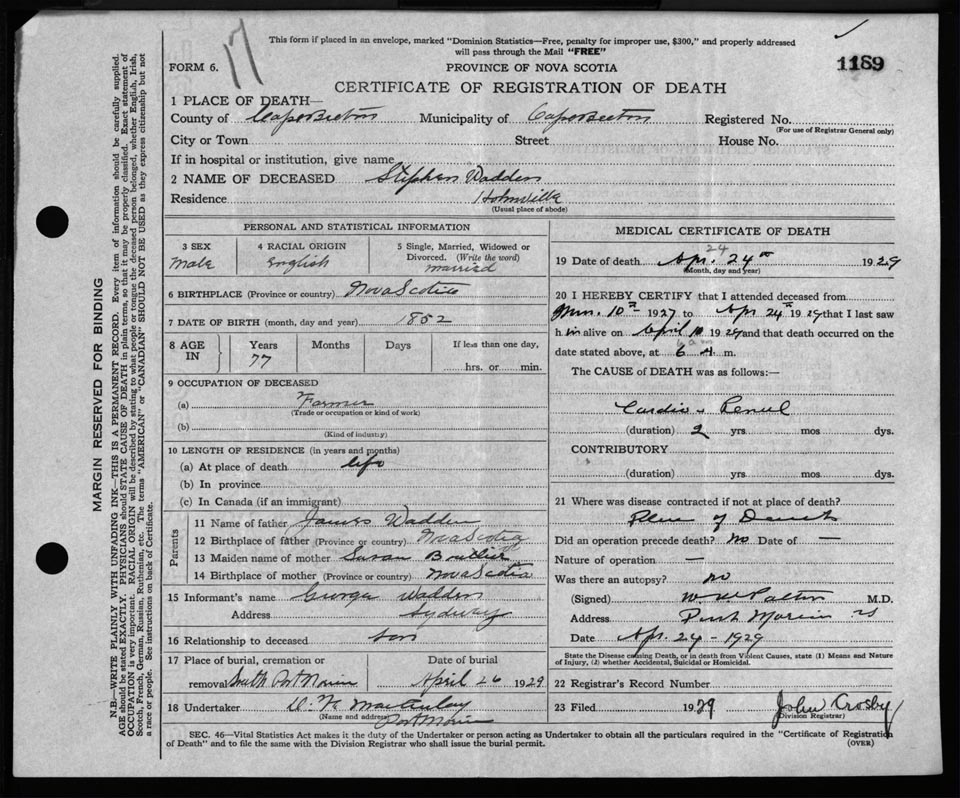 17
This form if placed in an envelope, marked "Dominion Statistics—Free, penalty for improper use, $300," and properly addressed
will pass through the Mail "FREE"
1189
FORM 6.
PROVINCE OF NOVA SCOTIA
CERTIFICATE OF REGISTRATION OF DEATH
1 PLACE OF DEATH—
County of Cape Breton Municipality of Cape Breton Registered No.
(For use of Registrar General only)
City or Town Street House No.
If in hospital or institution, give name
2 NAME OF DECEASED Stephen Wadden
Residence Hornville
(Usual place of abode)
PERSONAL AND STATISTICAL INFORMATION
3 SEX 4 RACIAL ORIGIN 5 Single, Married, Widowed or
Divorced. (Write the word)
Male English married
6 BIRTHPLACE (Province or country) Nova Scotia
7 DATE OF BIRTH (month, day and year) 1852
8 AGE IN Years Months Days If less than one day,
77 hrs. or min.
9 OCCUPATION OF DECEASED
(a) Farmer
(Trade or occupation or kind of work)
(b)
(Kind of industry)
10 LENGTH OF RESIDENCE (in years and months)
(a) At place of death life
(b) In province
(c) In Canada (if an immigrant)
Parents
11 Name of father James Wadden
12 Birthplace of father (Province or country) Nova Scotia
13 Maiden name of mother Susan Boutlier
14 Birthplace of mother (Province or country) Nova Scotia
15 Informant's name George Wadden
Address Sydney
16 Relationship to deceased son
17 Place of burial, cremation or Date of burial
removal South Port Morien April 26 1929
18 Undertaker
(Name and address) Port Morien
MEDICAL CERTIFICATE OF DEATH
24
19 Date of death Apr. 24th 1929
(Month, day and year)
20 I HEREBY CERTIFY that I attended deceased from
10th 1927 to Apr 24th 1929 that I last saw
h im alive on April 10 1929 and that death occurred on
6 a m
date stated above, at 6 A. m.
The CAUSE of DEATH was as follows:—
Cardio Renal
(duration) 2 yrs. mos. dys.
CONTRIBUTORY
(duration) yrs. mos. dys.
21 Where was disease contracted if not at place of death?
Place of Death
Did an operation precede death? no Date of —
Nature of operation —
Was there an autopsy? no
(Signed) M.D.
Address Port Morien NS
Date Apr. 24 - 1929
State the Disease causing Death, or in death from Violent Causes, state (1) Means and Nature
of Injury, (2) whether Accidental, Suicidal or Homicidal.
22 Registrar's Record Number
23 Filed 1929 John Crosby
(Division Registrar)
SEC. 46—Vital Statistics Act makes it the duty of the Undertaker or person acting as Undertaker to obtain all the particulars required in the "Certificate of Registration
of Death" and to file the same with the Division Registrar who shall issue the burial permit.
(OVER)
MARGIN RESERVED FOR BINDING
N.B.—WRITE PLAINLY WITH UNFADING INK—THIS IS A PERMANENT RECORD. Every item of information should be carefully supplied.
AGE should be stated EXACTLY. PHYSICIANS should STATE CAUSE OF DEATH in plain terms, so that it may be properly classified. Exact statement of
OCCUPATION is very important. RACIAL ORIGIN will be described by stating to what people or tongue the deceased person belonged, whether English, Irish,
Scotch, French, German, Russian, Ruthenian, etc. The terms "AMERICAN" or "CANADIAN" SHOULD NOT BE USED as they express citizenship but not
a race or people. See instructions on back of Certificate.